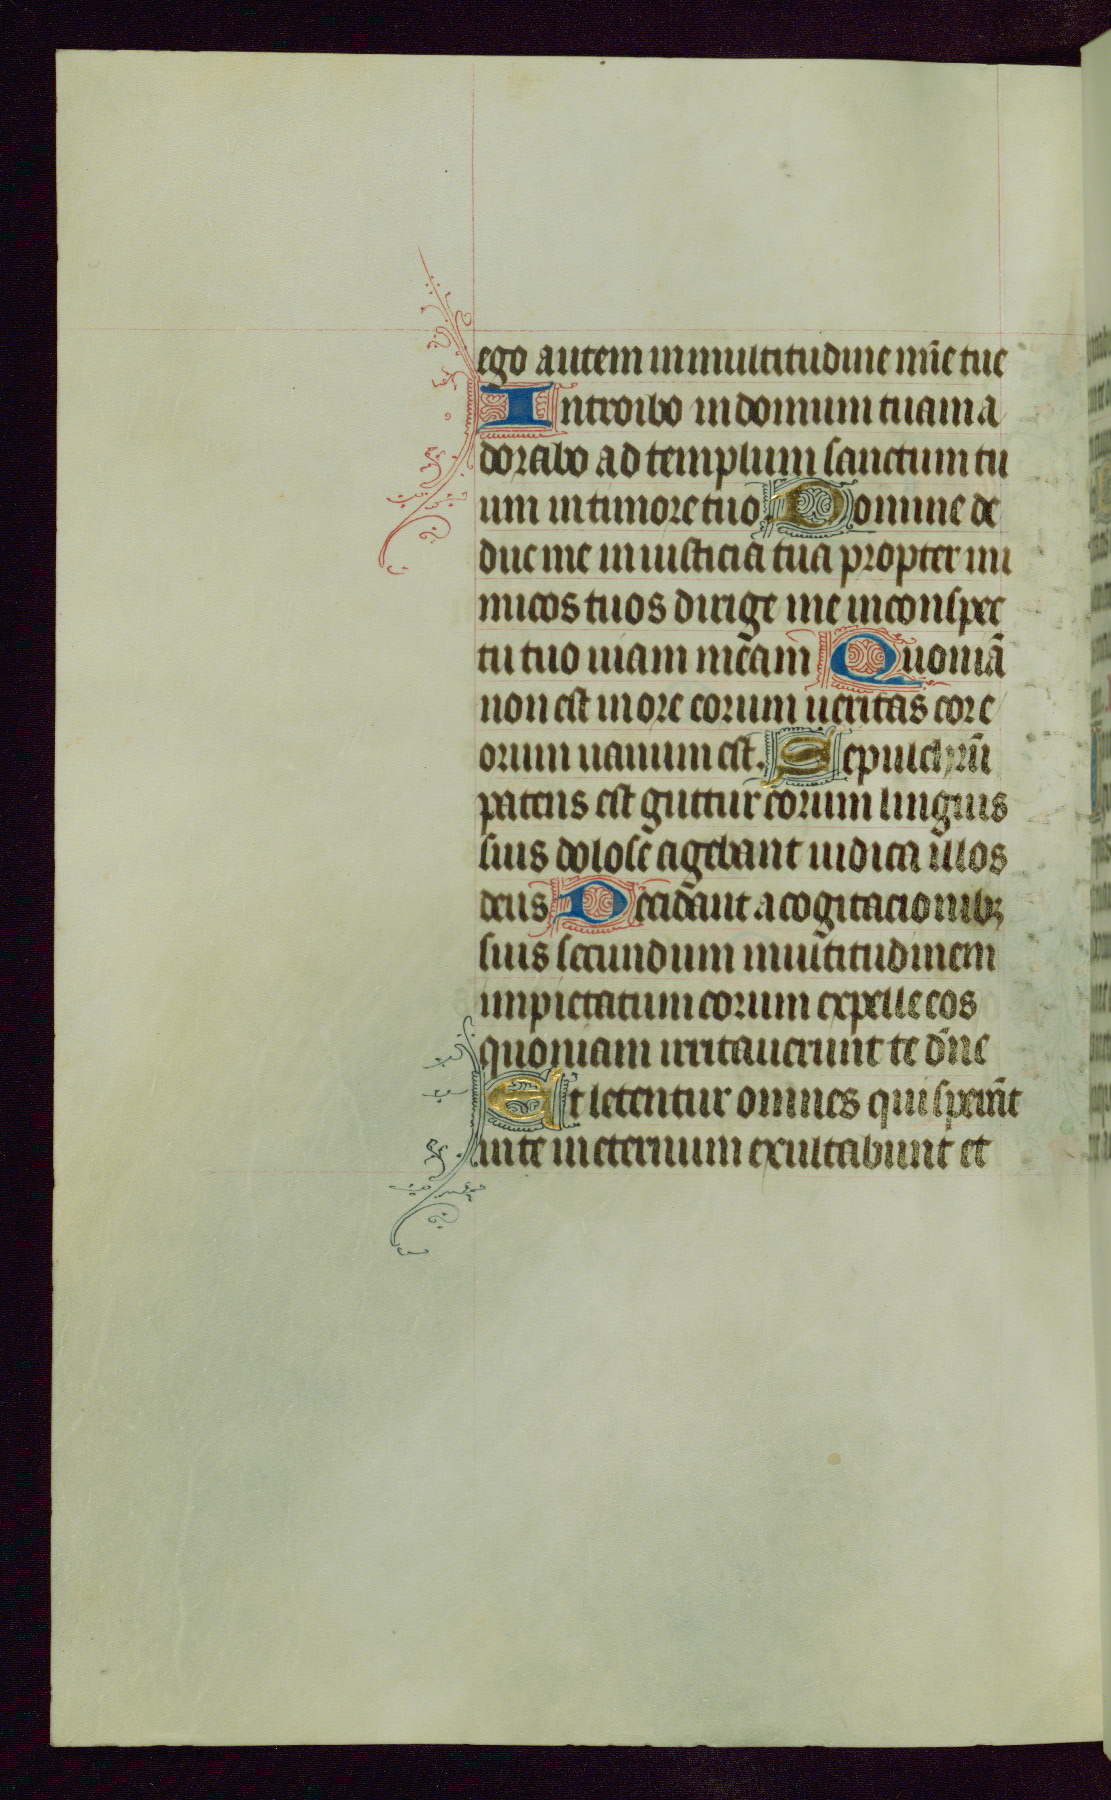 ego autem in multitudine mīe tue
Introibo in domum tuam a
dorabo ad templum sanctum tu
um in timore tuo. Domine de
duc me in iusticia tua propter ini
micos tuos dirige me in conspec
tu tuo uiam meam Quoniā
non est in ore eorum ueritas cor e
orum uanum est. Sepulchrū
patens est guttur eorum linguis
suis dolose agebant iudica illos
deus Decidant a cogitacionibꝫ
suis secundum multitudinem
impietatum eorum expelle eos
quoniam irritauerunt te dn̄e
Et letentur omnes qui sperāt
in te in eternum exultabunt et